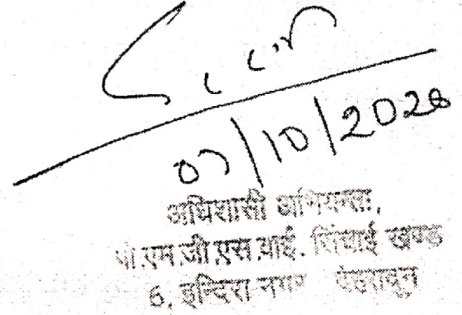 07/10/2020
अधिशासी अभियन्ता,
पी.एम.जी.एस.वाई. सिंचाई खण्ड
6, इन्दिरा नगर देहरादून